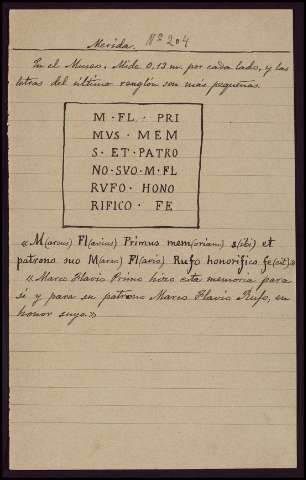 Merida. Nº 204
En el Museo. Mide 0,13 m. por cada lado, y las
letras del último renglón son más pequeñas.
M · FL · PRI
MVS · MEM
S · ET · PATRO
NO · SVO · M · FL
RVFO · HONO
RIFICO · FE
«M(arcus) Fl(avius) Primus mem(oriam) s(ibi) et
patrono suo M(arco) Fl(avio) Rufo honorifico fe(cit)»
«Marco Flavio Primo hizo esta memoria para
sí y para su patrono Marco Flavio Rufo, en
honor suyo.»